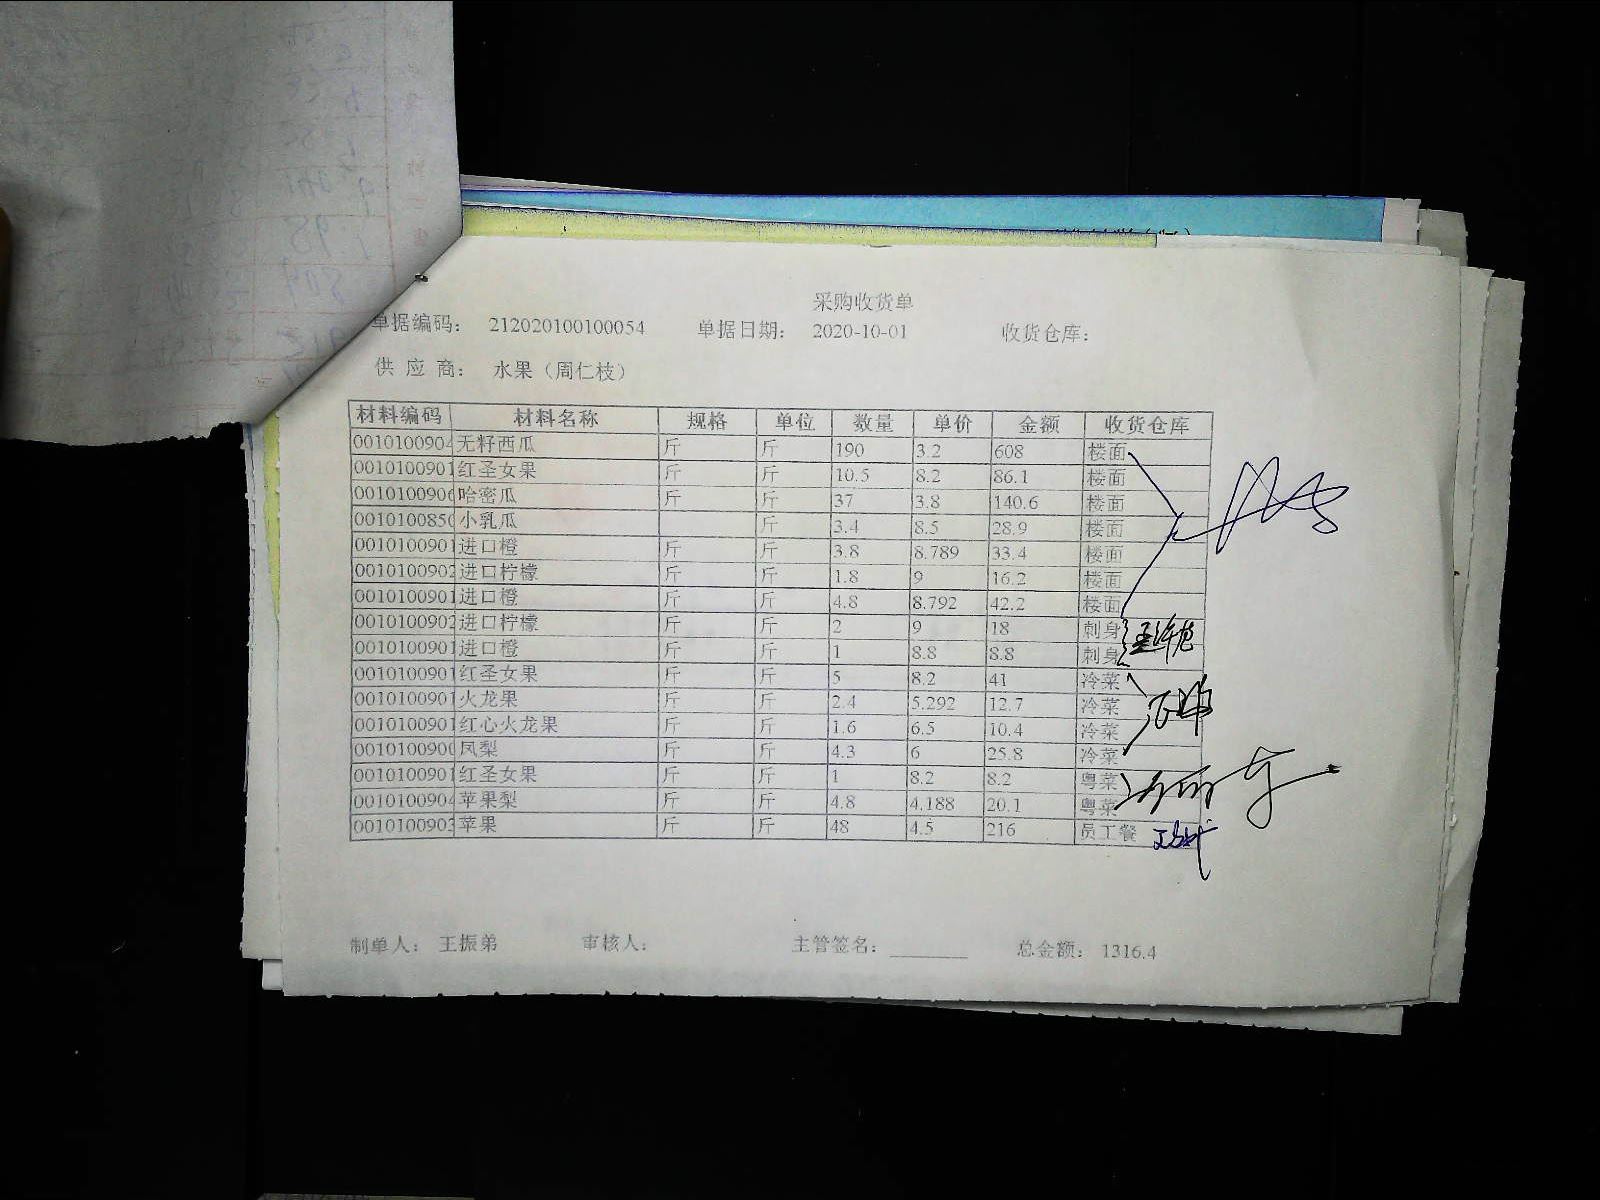 采购收货单
单据编码： 212020100100054 单据日期： 2020-10-01 收货仓库：
供 应 商： 水果（周仁枝）
材料编码 材料名称 规格 单位 数量 单价 金额 收货仓库
0010100904 无籽西瓜 斤 斤 190 3.2 608 楼面
0010100901 红圣女果 斤 斤 10.5 8.2 86.1 楼面
0010100906 哈密瓜 斤 斤 37 3.8 140.6 楼面
0010100850 小乳瓜 斤 3.4 8.5 28.9 楼面
0010100901 进口橙 斤 斤 3.8 8.789 33.4 楼面
0010100902 进口柠檬 斤 斤 1.8 9 16.2 楼面
0010100901 进口橙 斤 斤 4.8 8.792 42.2 楼面
0010100902 进口柠檬 斤 斤 2 9 18 刺身
0010100901 进口橙 斤 斤 1 8.8 8.8 刺身
0010100901 红圣女果 斤 斤 5 8.2 41 冷菜
0010100901 火龙果 斤 斤 2.4 5.292 12.7 冷菜
0010100901 红心火龙果 斤 斤 1.6 6.5 10.4 冷菜
0010100900 凤梨 斤 斤 4.3 6 25.8 冷菜
0010100901 红圣女果 斤 斤 1 8.2 8.2 粤菜
0010100904 苹果梨 斤 斤 4.8 4.188 20.1 粤菜
0010100903 苹果 斤 斤 48 4.5 216 员工餐
制单人： 王振弟 审核人： 主管签名： 总金额： 1316.4